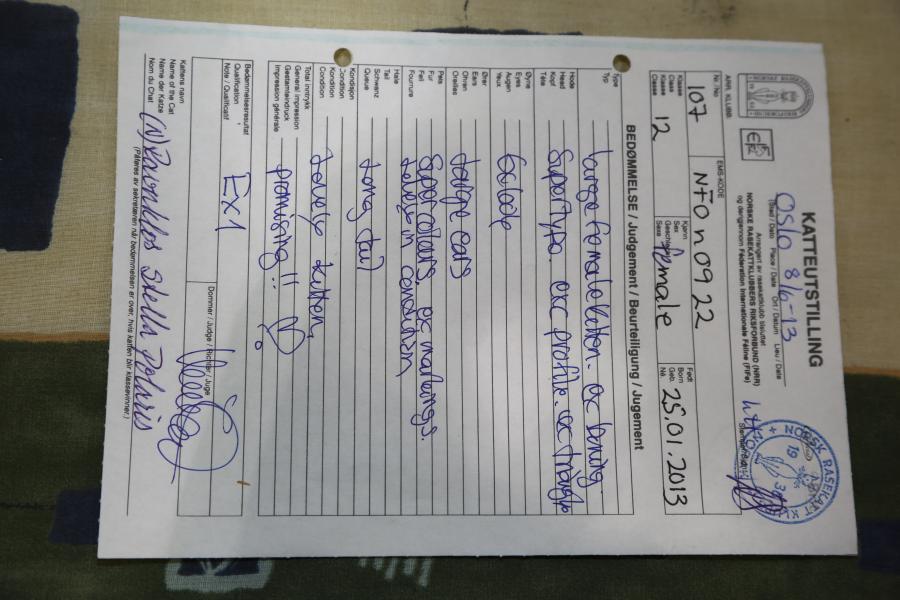 KATTEUTSTILLING
Oslo 8/6-13
Sted / Dato Place / Date Ort / Datum Lieu / Date
Arrangert av rasekattklubb tilsluttet
NORSKE RASEKATTKLUBBERS RIKSFORBUND (NRR)
og derigjennom Fédération Internationale Féline (FIFe)
NORSK RASEKATT
ARR. KLUBB
Nr./No.
107
EMS-KODE
NFO n 09 22
Klasse
Class
Klasse
Classe
12
Kjønn
Sex
Geschlecht
Sexe
female
Født
Born
Geb.
Né.
25.01.2013
BEDØMMELSE / Judgement / Beurteiligung / Jugement
Type
Typ
large female kitten. ex boning
Hode
Head
Kopf
Tête
super type. exc profile. ex triangle
Øyne
Eyes
Augen
Yeux
Ører
Ears
Ohren
Oreilles
large ears
Pels
Fur
Fell
Fourrure
Super colours, ex markings.
in condition
Hale
Tail
Schwanz
Queue
long tail
Kondisjon
Condition
Kondition
Condition
Total inntrykk
General impression
Gesamteindruck
Impression générale
lovely kitten,
promising!!
Bedømmelsesresultat
Qualification
Note / Qualificatif
Ex 1
Dommer / Judge / Richter / Juge
Kattens navn
Name of the Cat
Name der Katze
Nom du Chat
(Påføres av sekretæren når bedømmelsen er over, hvis katten blir klassevinner.)